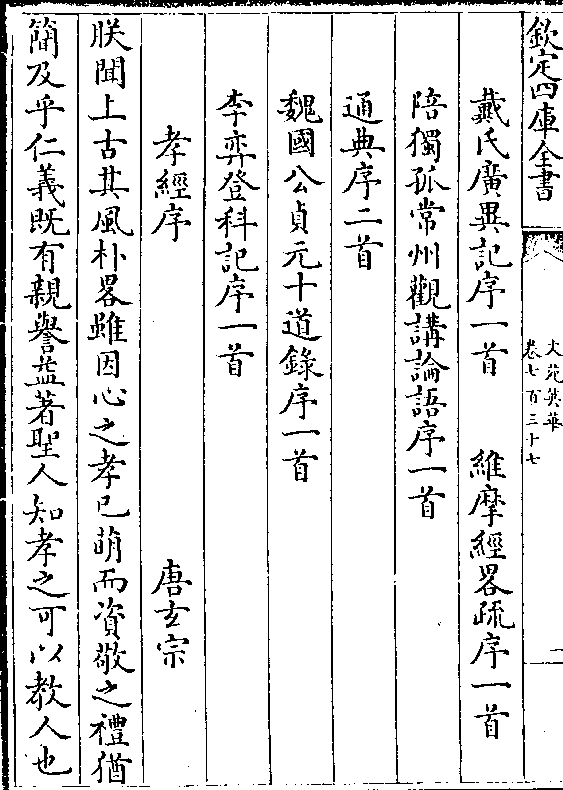 欽定四庫全書
文苑英華
卷七百三十七
二
戴氏廣異記序一首 維摩經畧疏序一首
陪獨孤常州觀講論語序一首
通典序二首
魏國公貞元十道錄序一首
李弈登科記序一首
孝經序 唐玄宗
朕聞上古其風朴畧雖因心之孝已萌而資敬之禮猶
簡及乎仁義既有親譽益著聖人知孝之可以教人也